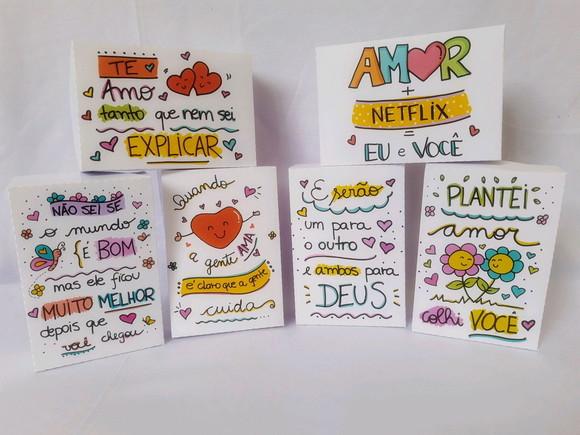 TE
Amo
tanto que nem sei
EXPLICAR
AMOR
+
NETFLIX
=
EU e VOCÊ
NÃO SEI SE
o mundo
É BOM
mas ele ficou
MUITO MELHOR
depois que
você chegou
Quando
a gente AMA
é claro que a gente
cuida
E serão
um para
o outro
e ambos para
DEUS
PLANTEI
amor
colhi VOCÊ